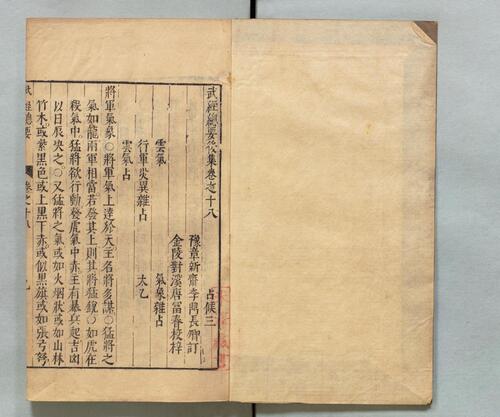 武經總要後集卷之十八
占候三
豫章新齋李鬥長卿訂
金陵對溪唐富春校梓
雲氣
氣象雜占
行軍災異雜占
太乙
雲氣占
將軍氣象○將軍氣上達於天主名將多謀○猛將之
氣如龍兩軍相當若發其上則其將猛銳○如虎在
殺氣中猛將欲行動發虎氣中赤主有暴兵起吉凶
以日辰决之○又猛將之氣或如火烟狀或如山林
竹木或紫黑色或上黑下赤或似黑旗或如張弓弩
武經總要
卷之十八